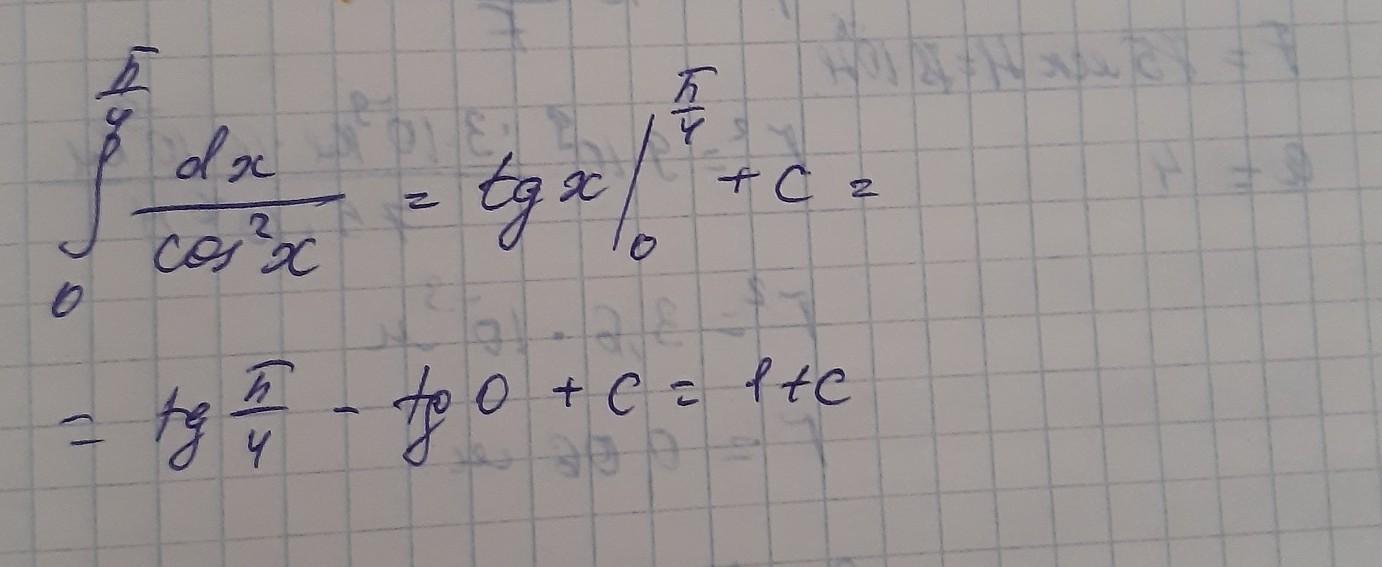 ∫₀^(π/4) dx/cos²x = tg x |₀^(π/4) + C =
= tg π/4 - tg 0 + C = 1 + C